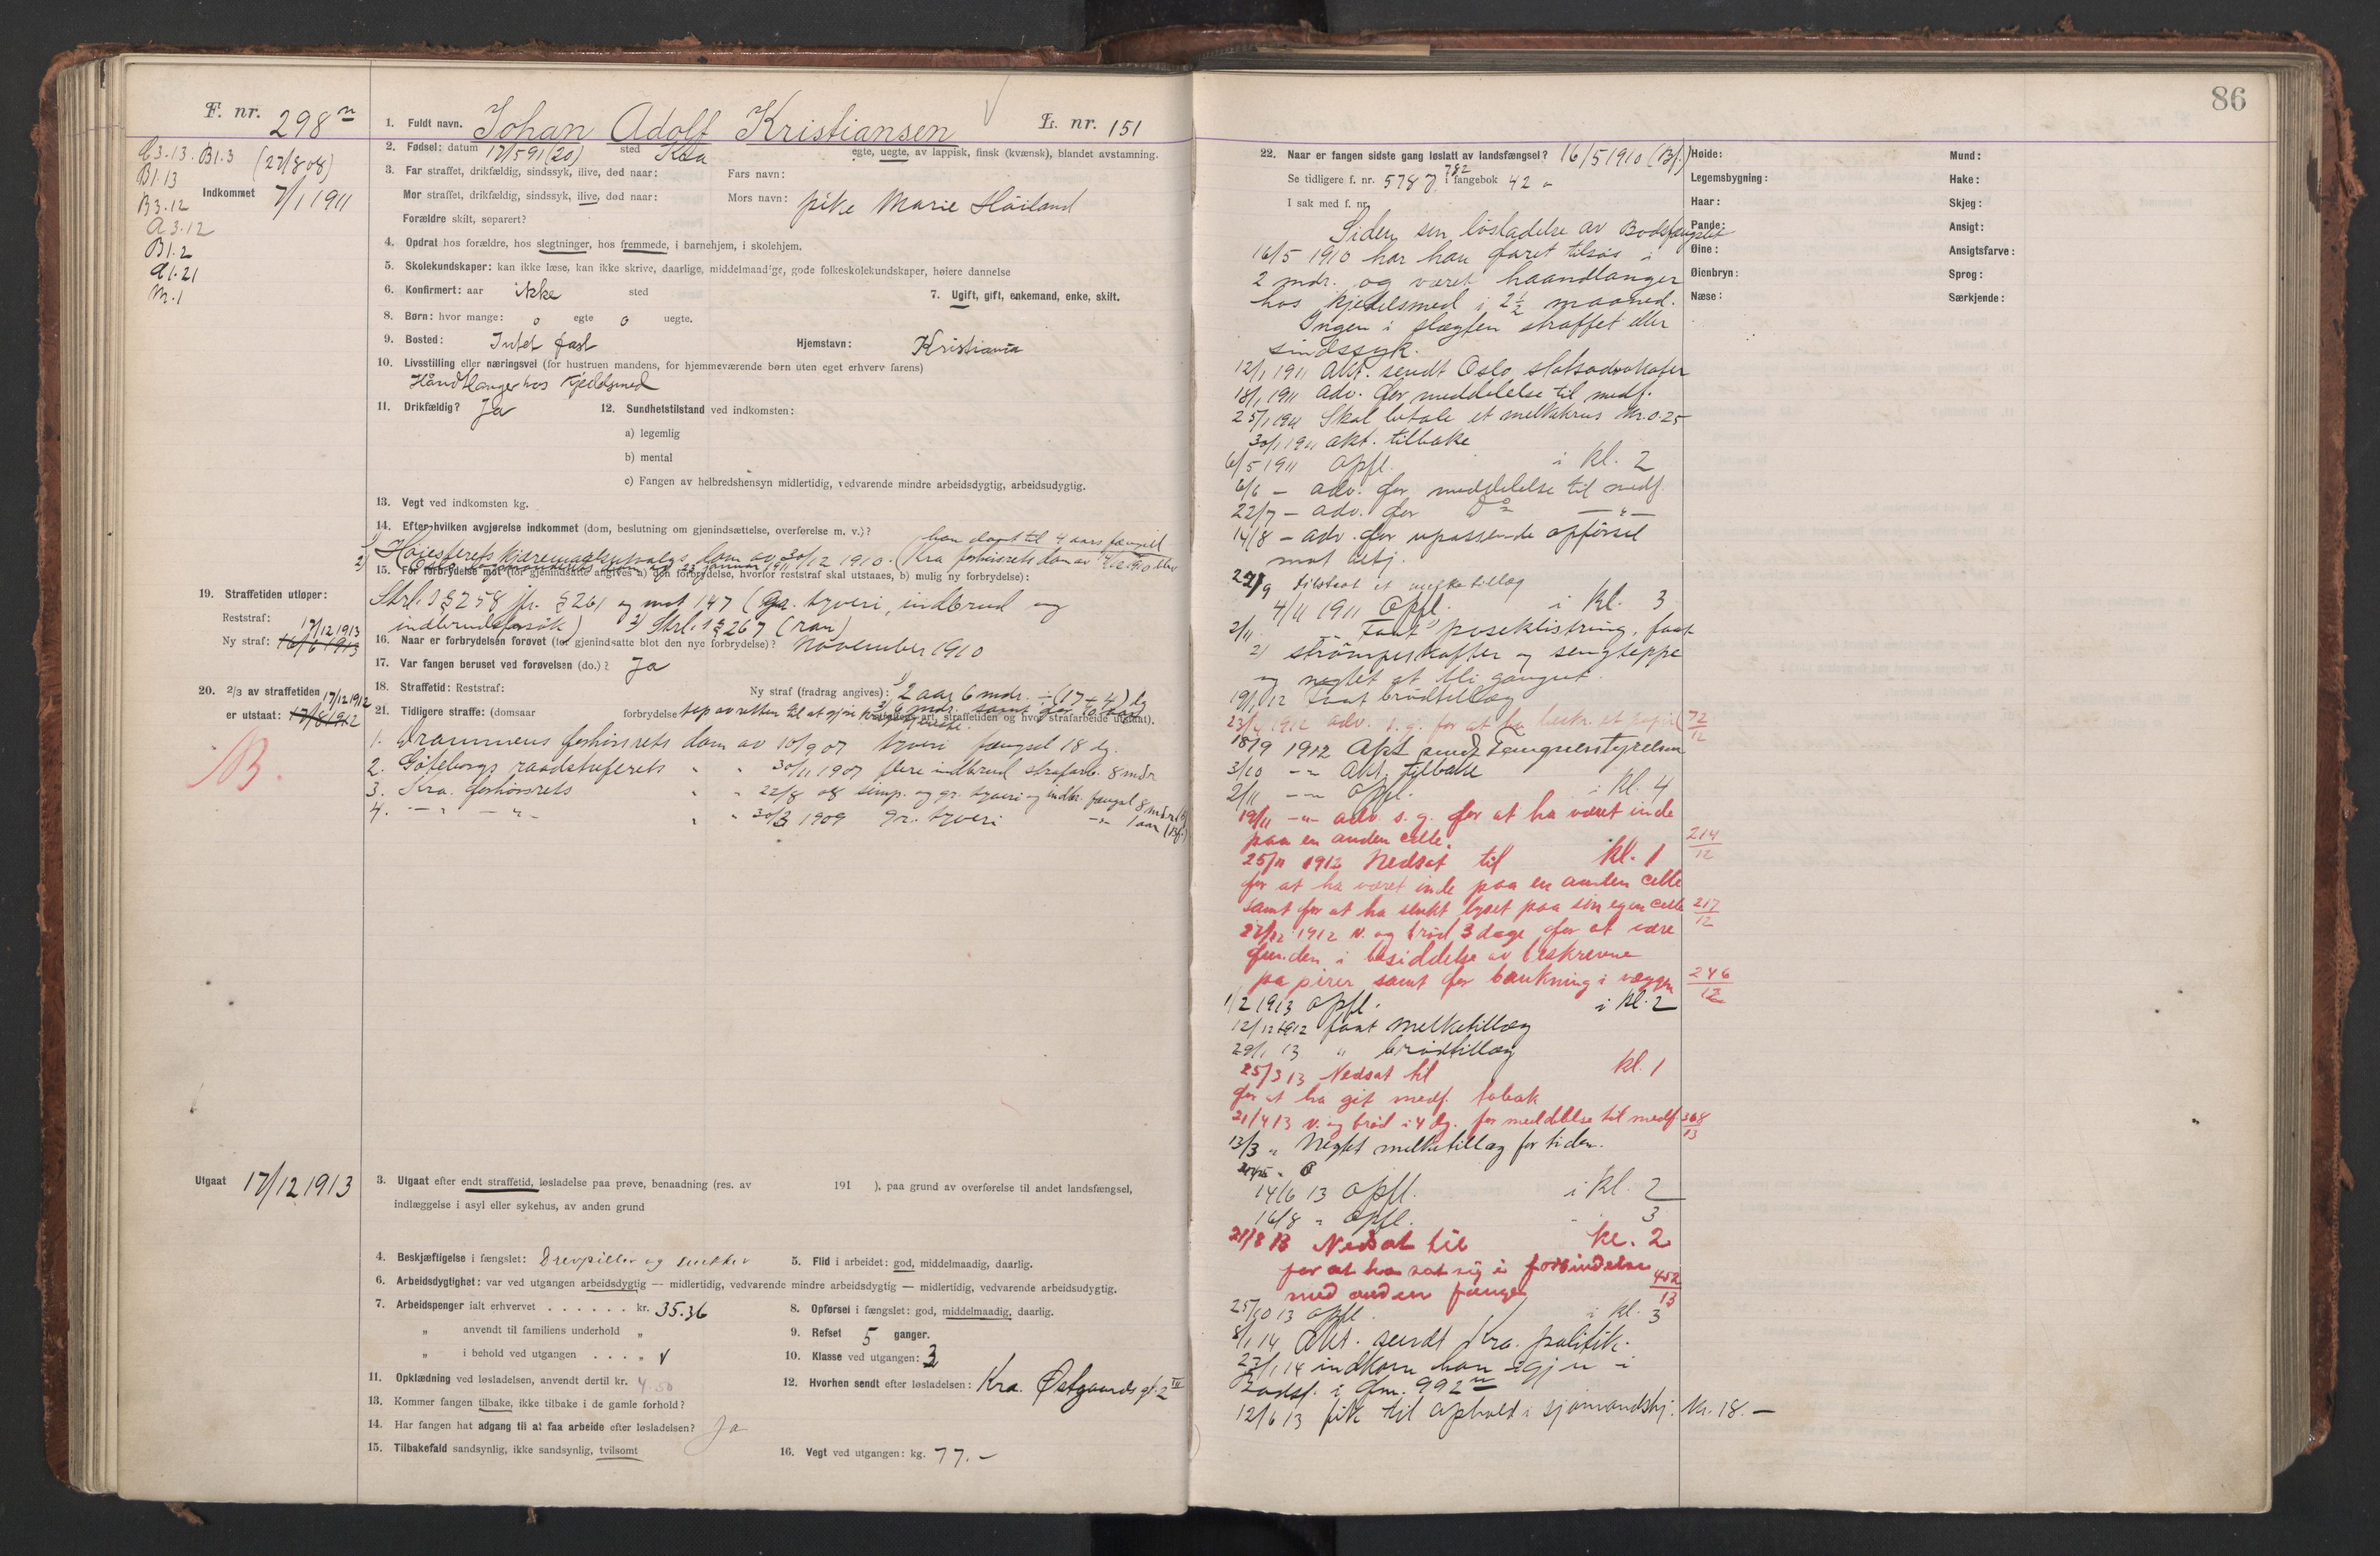 F. nr. 298 n
A3.13. B1.3 (27/8 08)
B1.13
Indkommet 7/1 1911
B3.12
A3.12
B1.2
A1.21
M.1
1. Fuldt navn. Johan Adolf Kristiansen L. nr. 151
2. Fødsel: datum 17/5 91 (20) sted Kra
egte, uegte, av lappisk, finsk (kvænsk), blandet avstamning.
3. Far straffet, drikfældig, sindssyk, ilive, død naar: Fars navn:
Mor straffet, drikfældig, sindssyk, ilive, død naar: Mors navn: pike Marie Höiland
Forældre skilt, separert?
4. Opdrat hos forældre, hos slegtninger, hos fremmede, i barnehjem, i skolehjem.
5. Skolekundskaper: kan ikke læse, kan ikke skrive, daarlige, middelmaadige, gode folkeskolekundskaper, høiere dannelse
6. Konfirmert: aar ikke sted 7. Ugift, gift, enkemand, enke, skilt.
8. Børn: hvor mange: o egte o uegte.
9. Bosted: Intet fast Hjemstavn: Kristiania
10. Livsstilling eller næringsvei (for hustruen mandens, for hjemmeværende børn uten eget erhverv farens)
Håndtlanger hos kjedelsmed
11. Drikfældig? Ja 12. Sundhetstilstand ved indkomsten:
a) legemlig
b) mental
c) Fangen av helbredshensyn midlertidig, vedvarende mindre arbeidsdygtig, arbeidsudygtig.
13. Vegt ved indkomsten kg.
14. Efter hvilken avgjørelse indkommet (dom, beslutning om gjenindsættelse, overførelse m. v.)?
1) Høiesterets kjæremaalsutvalgs dom av 30/12 1910. (Kra forhørsrets dom av
15. For forbrydelse mot (for gjenindsatte angives a) den forbrydelse, hvorfor reststraf skal utstaaes, b) mulig ny forbrydelse):
Strl.s § 258 jfr. § 261 og mot 147 (gr. tyveri, indbrud og
indbrudsforsök) 2) Strl.s § 267 (ran)
16. Naar er forbrydelsen forøvet (for gjenindsatte blot den nye forbrydelse)? November 1910
17. Var fangen beruset ved forøvelsen (do.)? Ja
18. Straffetid: Reststraf: Ny straf (fradrag angives): 1) 2 aar 6 mdr. ÷ (17 + 4) dg
19. Straffetiden utløper:
Reststraf: 17/12 1913
Ny straf: 16/6 1913
20. 2/3 av straffetiden 17/12 1912
er utstaat: 17/8 1912
21. Tidligere straffe: (domsaar forbrydelsens art, straffetiden og hvor strafarbeide utstaat).
1. Drammens forhörsrets dom av 10/9 07 tyveri fængsel 18 dg.
2. Göteborgs raadstuferets " " 30/11 1907 flere indbrud strafarb. 8 mdr
3. Kra. forhörsrets " " 22/8 08 simp. og gr. tyveri og indbr. fængsel 8 mdr
4. — " — " — " " 30/3 1909 gr. tyveri —"— 1 aar (Bf.)
B.
Utgaat 17/12 1913
3. Utgaat efter endt straffetid, løsladelse paa prøve, benaadning (res. av 191 ), paa grund av overførelse til andet landsfængsel,
indlæggelse i asyl eller sykehus, av anden grund
4. Beskjæftigelse i fængslet: Drevpiller og snekker 5. Flid i arbeidet: god, middelmaadig, daarlig.
6. Arbeidsdygtighet: var ved utgangen arbeidsdygtig — midlertidig, vedvarende mindre arbeidsdygtig — midlertidig, vedvarende arbeidsudygtig.
7. Arbeidspenger ialt erhvervet . . . . . . kr. 35.36 8. Opførsel i fængslet: god, middelmaadig, daarlig.
" anvendt til familiens underhold " 9. Refset 5 ganger.
" i behold ved utgangen . . . . " 10. Klasse ved utgangen: 3
11. Opklædning ved løsladelsen, anvendt dertil kr. 4.50 12. Hvorhen sendt efter løsladelsen: Kra. Østgaards gt. 2 IV
13. Kommer fangen tilbake, ikke tilbake i de gamle forhold?
14. Har fangen hat adgang til at faa arbeide efter løsladelsen? Ja
15. Tilbakefald sandsynlig, ikke sandsynlig, tvilsomt 16. Vegt ved utgangen: kg. 77.-
86
22. Naar er fangen sidste gang løslatt av landsfængsel? 16/5 1910 (Bf.)
Se tidligere f. nr. 578 i fangebok 42
I sak med f. nr.
Høide:
Legemsbygning:
Haar:
Pande:
Øine:
Øienbryn:
Næse:
Mund:
Hake:
Skjeg:
Ansigt:
Ansigtsfarve:
Sprog:
Særkjende:
Siden sin løsladelse av Bodsfængslet
16/5 1910 har han faret tilsøs i
2 mdr. og været haandlanger
hos kjedelsmed i 2 1/2 maaned.
Ingen i slægten straffet eller
sindssyk.
12/1 1911 Akt. sendt Oslo statsadvokater
18/1 1911 adv. for meddelelse til medf.
25/1 1911 Skal betale et melkekrus kr. 0.25
30/1 1911 akt. tilbake
6/5 1911 opfl. i kl. 2
6/6 — adv. for meddelelse til medf.
22/7 — adv. for do —"—
14/8 — adv. for upassende opförsel
mot betj.
27/9 tilstaat et melketillæg
4/11 1911 Opfl. i kl. 3
2/11 — Faat poseklistring, faat
21 strömpeskafter og sengteppe
og negtet at bli gangut.
19/1 12 Faat brödtillæg
23/2 1912 adv. s. g. for at ha beskr. et papir 72/12
18/9 1912 Akt sendt Fængselsstyrelsen
3/10 —"— Akt. tilbake
2/11 —"— Opfl. i kl. 4
19/11 —"— adv. s. g. for at ha været inde
paa en anden celle. 214/12
25/11 1912 Nedsat til kl. 1
for at ha været inde paa en anden celle
samt for at ha slukt lyset paa sin egen celle 217/12
27/12 1912 v. og bröd 3 dage for at være
funden i besiddelse av beskrevne
papirer samt for bankning i væggen 246/12
1/2 1913 opfl. i kl. 2
12/12 1912 faat melketillæg
29/1 13 " brödtillæg
25/3 13 Nedsat til kl. 1
for at ha git medf. tobak
21/4 13 v. og bröd i 4 dg. for meddelelse til medf. 368/13
13/3 " Negtet melketillæg for tiden.
14/6 13 opfl. i kl. 2
16/8 " opfl. " 3
21/8 13 Nedsat til kl. 2
for at ha sat sig i forbindelse
med anden fange 452/13
25/10 13 opfl. i kl. 3
8/1 14 Akt. sendt Kra. politik.
23/1 14 indkom han igjen i
Bodsf. i fm. 992 n
12/6 13 fik til ophold i sjømandshj. kr. 18.—